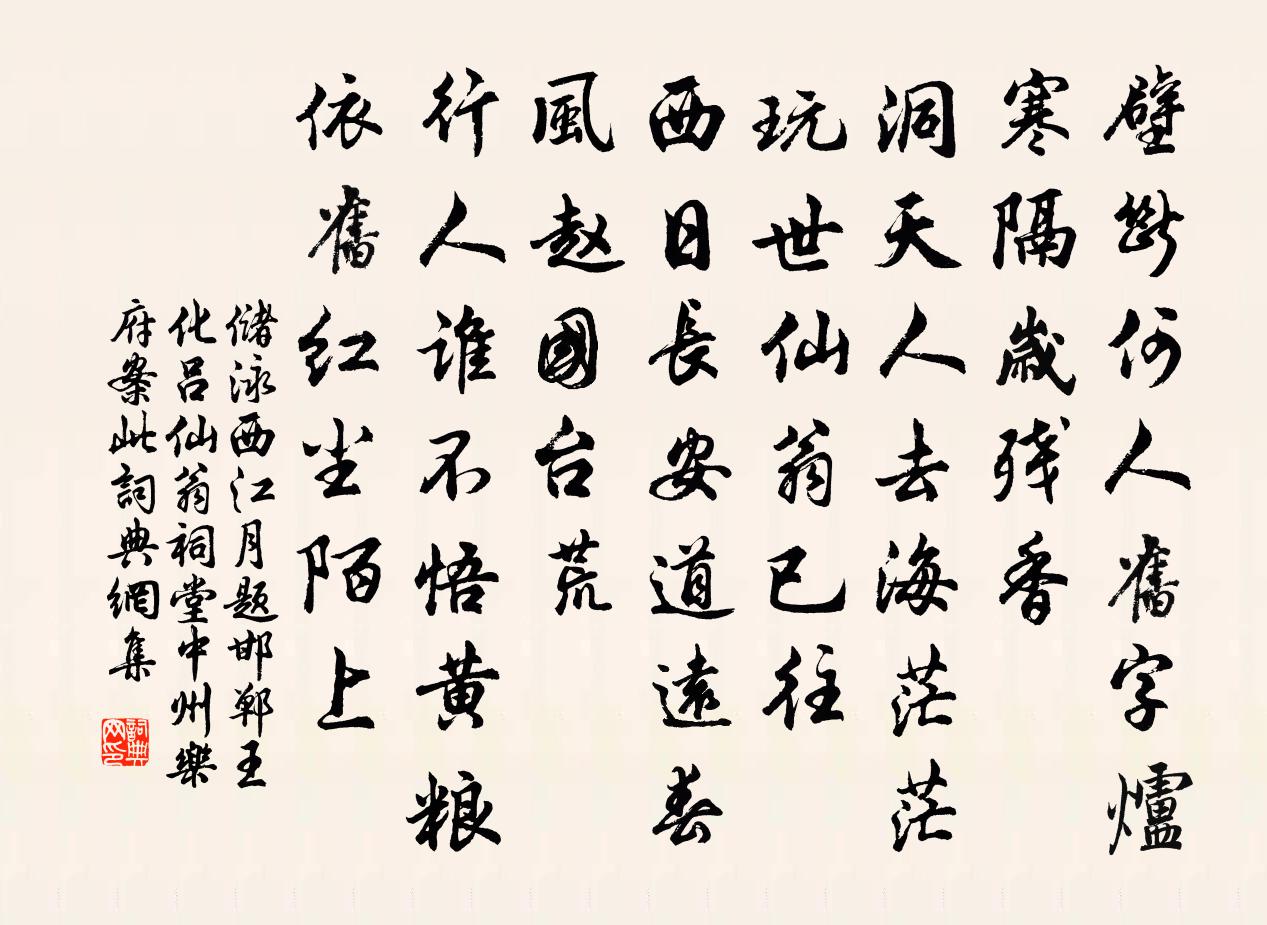 壁斷何人舊字爐
寒隔歲殘香
洞天人去海茫茫
玩世仙翁已往
西日長安道遠春
風趙國台荒
行人誰不悟黃粮
依舊紅尘陌上
儲泳西江月題邯鄲王
化呂仙翁祠堂中州樂
府案此詞典網集
詞典網印